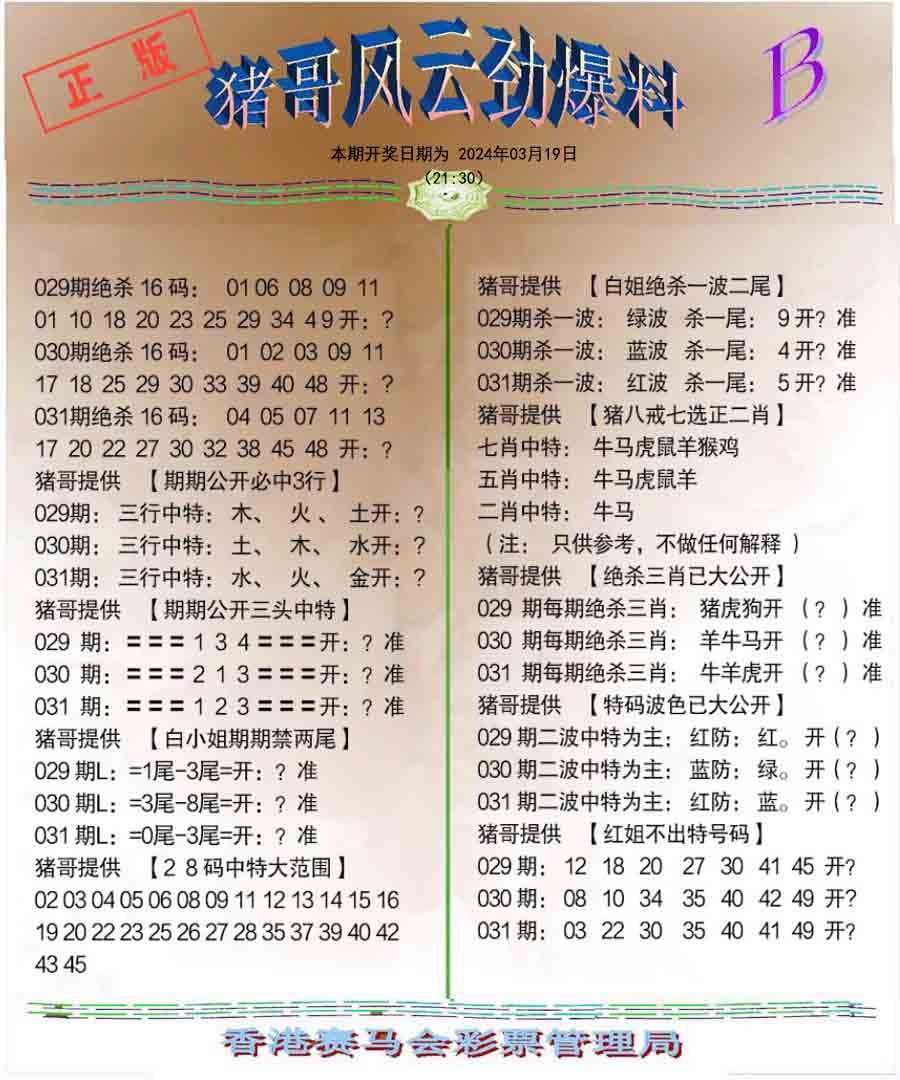 正版
猪哥风云劲爆料
B
本期开奖日期为 2024年03月19日
(21:30)
029期绝杀 16 码： 01 06 08 09 11
01 10 18 20 23 25 29 34 49 开：？
030期绝杀 16 码： 01 02 03 09 11
17 18 25 29 30 33 39 40 48 开：？
031期绝杀 16 码： 04 05 07 11 13
17 20 22 27 30 32 38 45 48 开：？
猪哥提供 【期期公开必中3行】
029期： 三行中特： 木、 火、 土开：？
030期： 三行中特： 土、 木、 水开：？
031期： 三行中特： 水、 火、 金开：？
猪哥提供 【期期公开三头中特】
029 期：＝＝＝1 3 4＝＝＝开：？准
030 期：＝＝＝2 1 3＝＝＝开：？准
031 期：＝＝＝1 2 3＝＝＝开：？准
猪哥提供 【白小姐期期禁两尾】
029 期L：=1尾-3尾=开：？准
030 期L：=3尾-8尾=开：？准
031 期L：=0尾-3尾=开：？准
猪哥提供 【２８码中特大范围】
02 03 04 05 06 08 09 11 12 13 14 15 16
19 20 22 23 25 26 27 28 35 37 39 40 42
43 45
猪哥提供 【白姐绝杀一波二尾】
029期杀一波： 绿波 杀一尾： 9开？准
030期杀一波： 蓝波 杀一尾： 4开？准
031期杀一波： 红波 杀一尾： 5开？准
猪哥提供 【猪八戒七选正二肖】
七肖中特： 牛马虎鼠羊猴鸡
五肖中特： 牛马虎鼠羊
二肖中特： 牛马
（注： 只供参考，不做任何解释 ）
猪哥提供 【绝杀三肖已大公开】
029 期每期绝杀三肖： 猪虎狗开 （？）准
030 期每期绝杀三肖： 羊牛马开 （？）准
031 期每期绝杀三肖： 牛羊虎开 （？）准
猪哥提供 【特码波色已大公开】
029 期二波中特为主：红防：红。开（？）
030 期二波中特为主：蓝防：绿。开（？）
031 期二波中特为主：红防：蓝。开（？）
猪哥提供 【红姐不出特号码】
029 期： 12 18 20 27 30 41 45 开？
030 期： 08 10 34 35 40 42 49 开？
031 期： 03 22 30 35 40 41 49 开？
香港赛马会彩票管理局